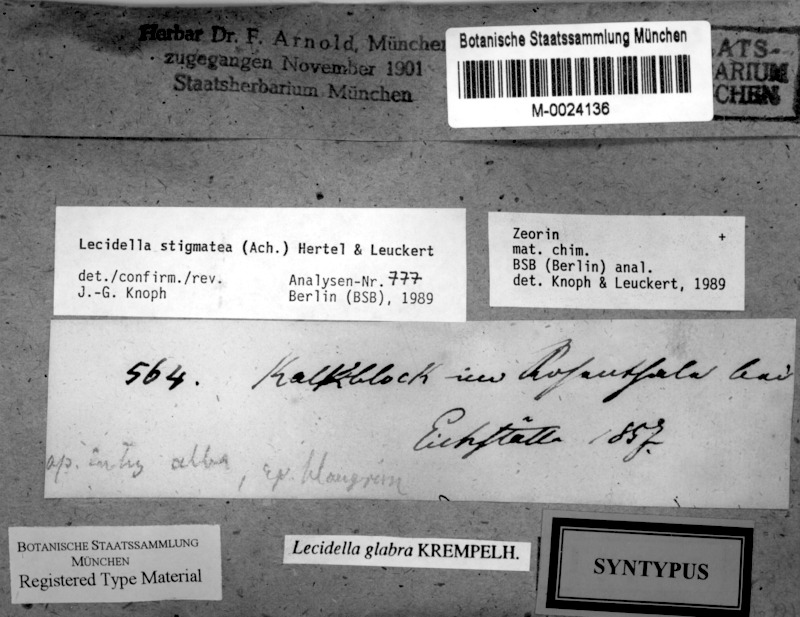 Herbar Dr. F. Arnold, München
zugegangen November 1901
Staatsherbarium München
Botanische Staatssammlung München
M-0024136
ATS-
ARIUM
CHEN
Lecidella stigmatea (Ach.) Hertel & Leuckert
det./confirm./rev. Analysen-Nr. 777
J.-G. Knoph Berlin (BSB), 1989
Zeorin +
mat. chim.
BSB (Berlin) anal.
det. Knoph & Leuckert, 1989
564. Kalkblock im Rosenthale bei
Eichstätt 1857.
ap. intus alba, ep. blaugrün
BOTANISCHE STAATSSAMMLUNG
MÜNCHEN
Registered Type Material
Lecidella glabra KREMPELH.
SYNTYPUS